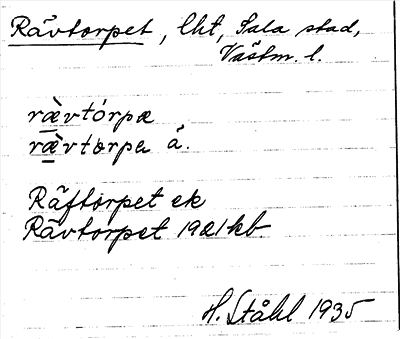 Rävtorpet, lht, Sala stad,
Västm. l.
ræ̀vtórpæ
ræ̀vtorpa å.
Räftorpet ek
Rävtorpet 1921 kb
H. Ståhl 1935